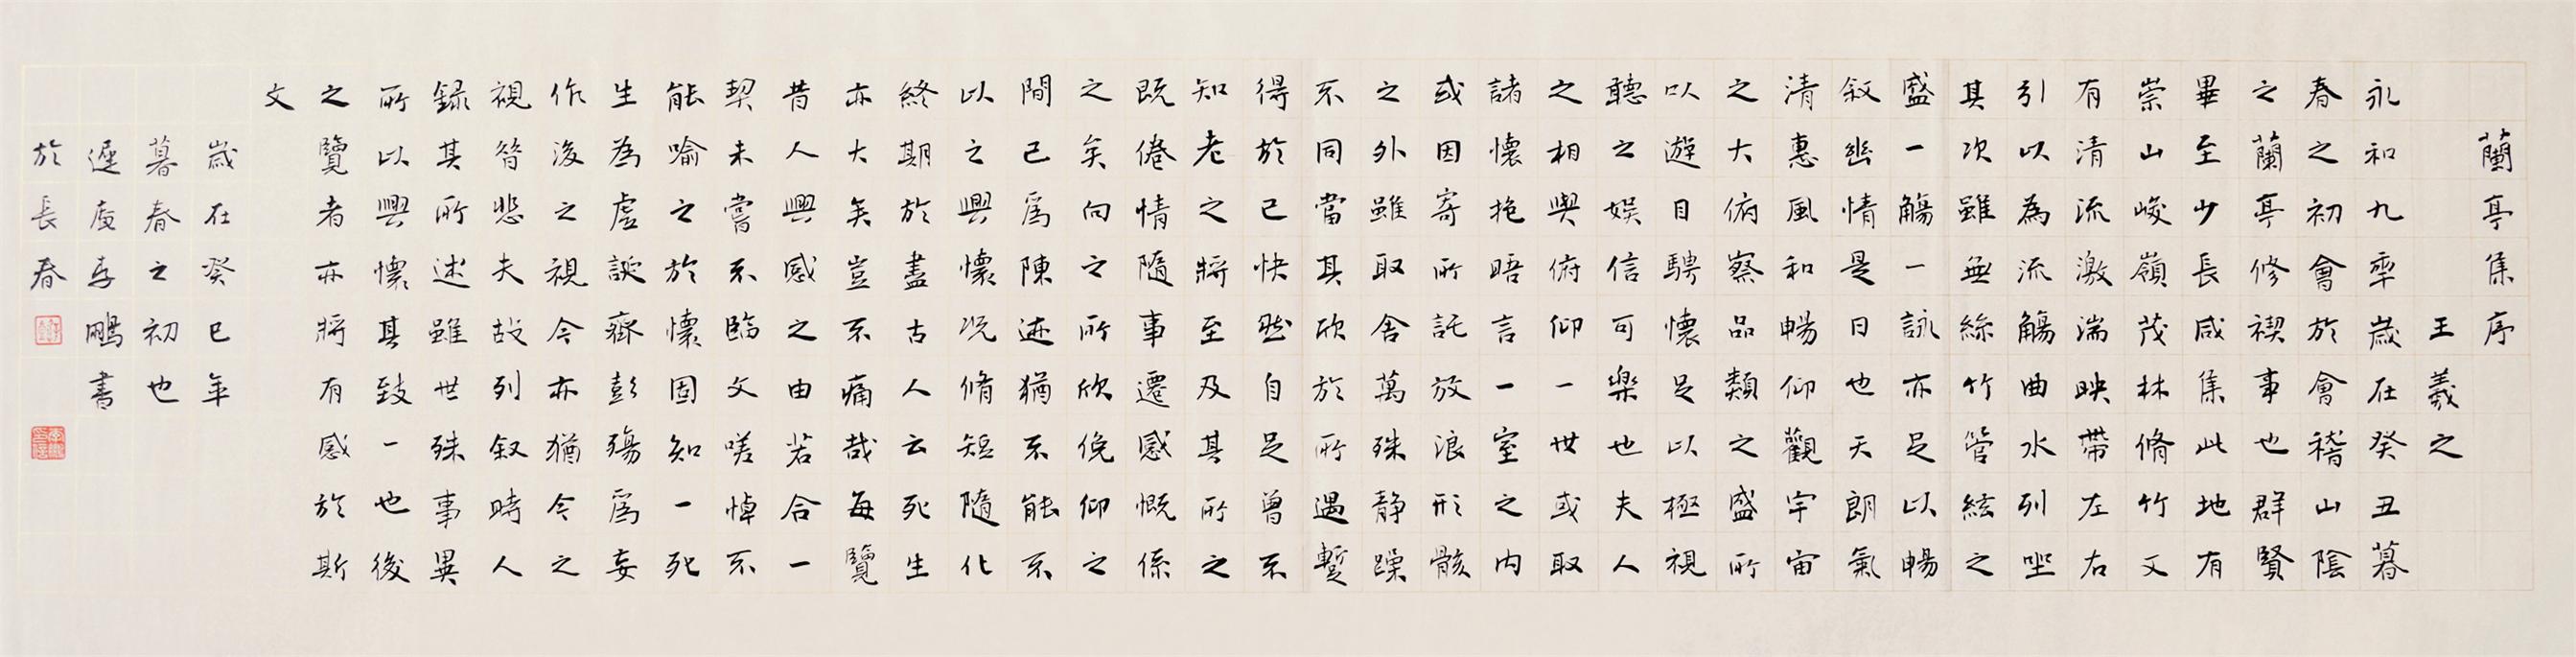 蘭亭集序
王羲之
永和九年歲在癸丑暮
春之初會於會稽山陰
之蘭亭修禊事也群賢
畢至少長咸集此地有
崇山峻嶺茂林脩竹又
有清流激湍映帶左右
引以為流觴曲水列坐
其次雖無絲竹管絃之
盛一觴一詠亦足以暢
叙幽情是日也天朗氣
清惠風和暢仰觀宇宙
之大俯察品類之盛所
以遊目騁懷足以極視
聽之娛信可樂也夫人
之相與俯仰一世或取
諸懷抱晤言一室之内
或因寄所託放浪形骸
之外雖取舍萬殊静躁
不同當其欣於所遇暫
得於己快然自足曾不
知老之將至及其所之
既倦情隨事遷感慨係
之矣向之所欣俛仰之
間已爲陳迹猶不能不
以之興懷況脩短隨化
終期於盡古人云死生
亦大矣豈不痛哉每覽
昔人興感之由若合一
契未嘗不臨文嗟悼不
能喻之於懷固知一死
生為虛誕齊彭殤爲妄
作後之視今亦猶今之
視昔悲夫故列叙時人
録其所述雖世殊事異
所以興懷其致一也後
之覽者亦將有感於斯
文
歲在癸巳年
暮春之初也
遲李鵬書
於長春